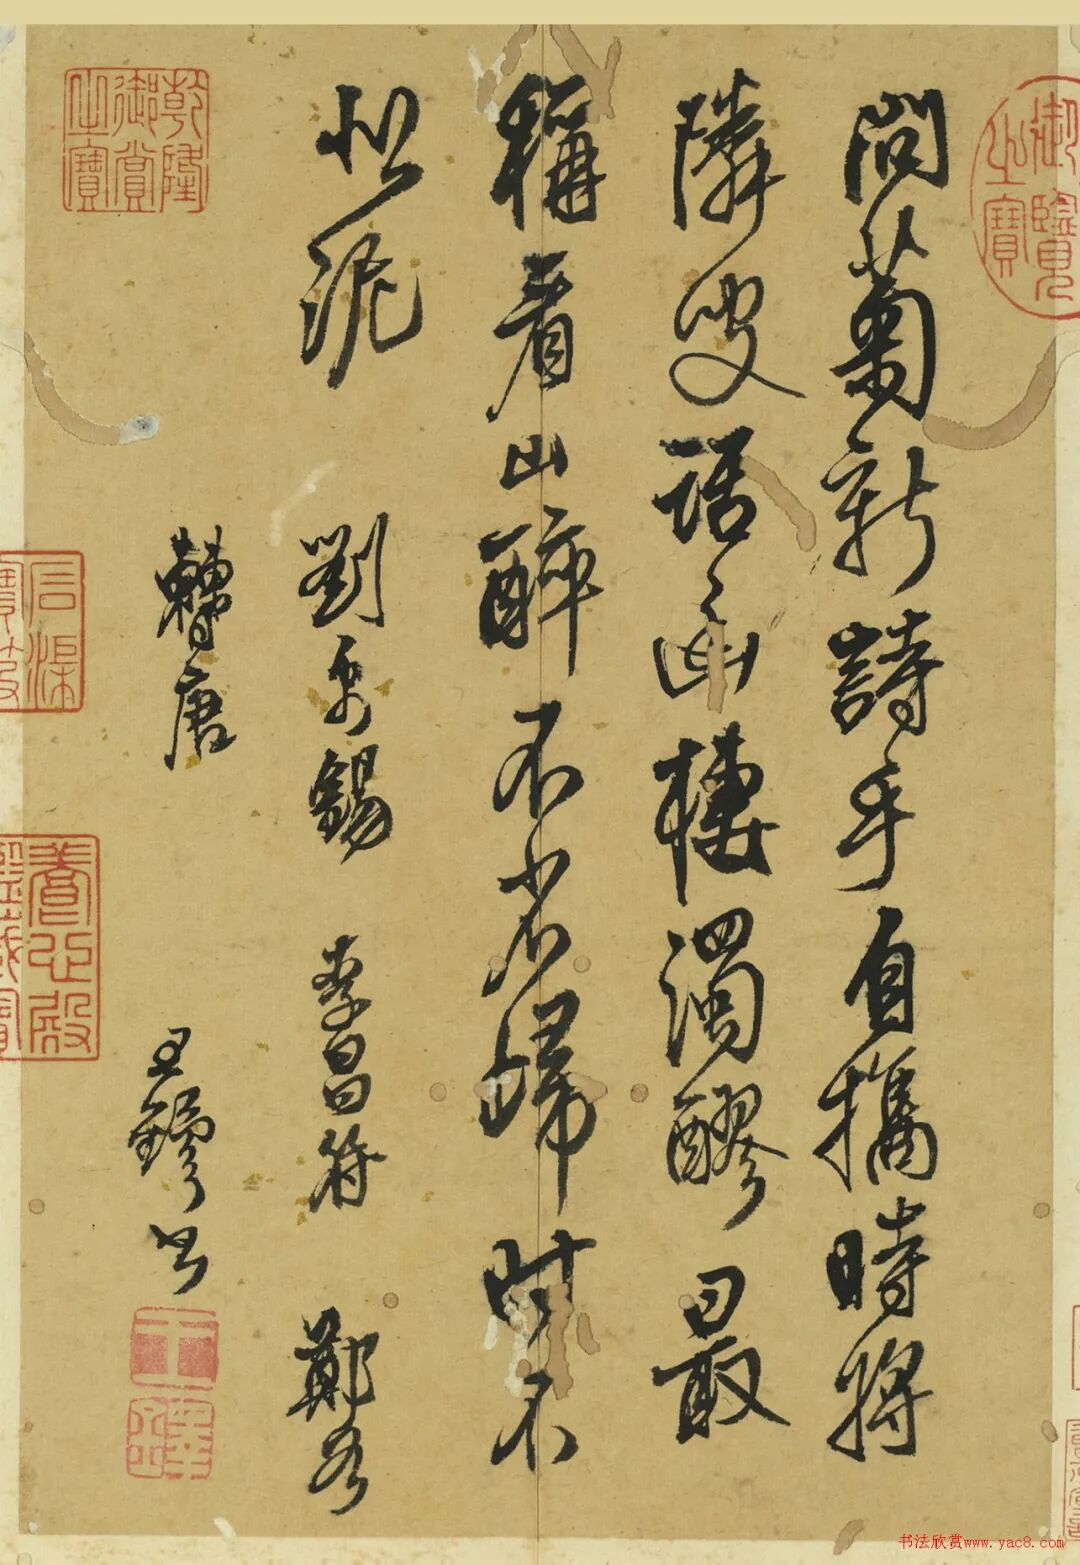 御覽之寶
問菊新詩手自攜時將
隣叟話幽棲濁醪最
稱看山醉不省歸時不
似泥
劉禹錫 李昌符 鄭谷
曹唐
王鐸書
乾隆御賞之寶
石渠寶笈
養心殿鑑藏寶
书法欣赏www.yac8.com